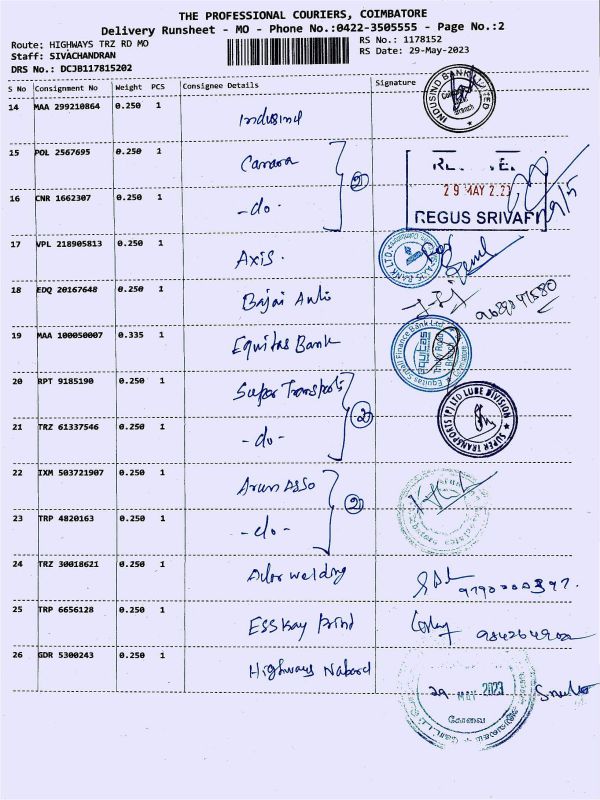 THE PROFESSIONAL COURIERS, COIMBATORE
Delivery Runsheet - MO - Phone No.:0422-3505555 - Page No.:2
Route: HIGHWAYS TRZ RD MO
RS No.: 1178152
Staff: SIVACHANDRAN
RS Date: 29-May-2023
DRS No.: DCJB117815202
S No Consignment No Weight PCS Consignee Details Signature
14 MAA 299210864 0.250 1 Indusind
INDUSIND BANK LIMITED
15 POL 2567695 0.250 1 Canara
②
29 MAY 2023
16 CNR 1662307 0.250 1 -do-
REGUS SRIVARI
29/5
17 VPL 218905813 0.250 1 Axis.
AXIS BANK LTD
18 EDQ 20167648 0.250 1 Bajai Auto
19 MAA 100050007 0.335 1 Equitas Bank
Equitas Small Finance Bank Ltd
equitas
20 RPT 9185190 0.250 1 Super Transports
②
SUPER TRANSPORTS (P) LTD LUBE DIVISION
21 TRZ 61337546 0.250 1 -do-
22 IXM 503721907 0.250 1 Arun Asso
②
23 TRP 4820163 0.250 1 -do-
24 TRZ 30018621 0.250 1 Ador welding
25 TRP 6656128 0.250 1 Esskay Print
26 GDR 5300243 0.250 1 Highways Nabard
29 MAY 2023
கோவை